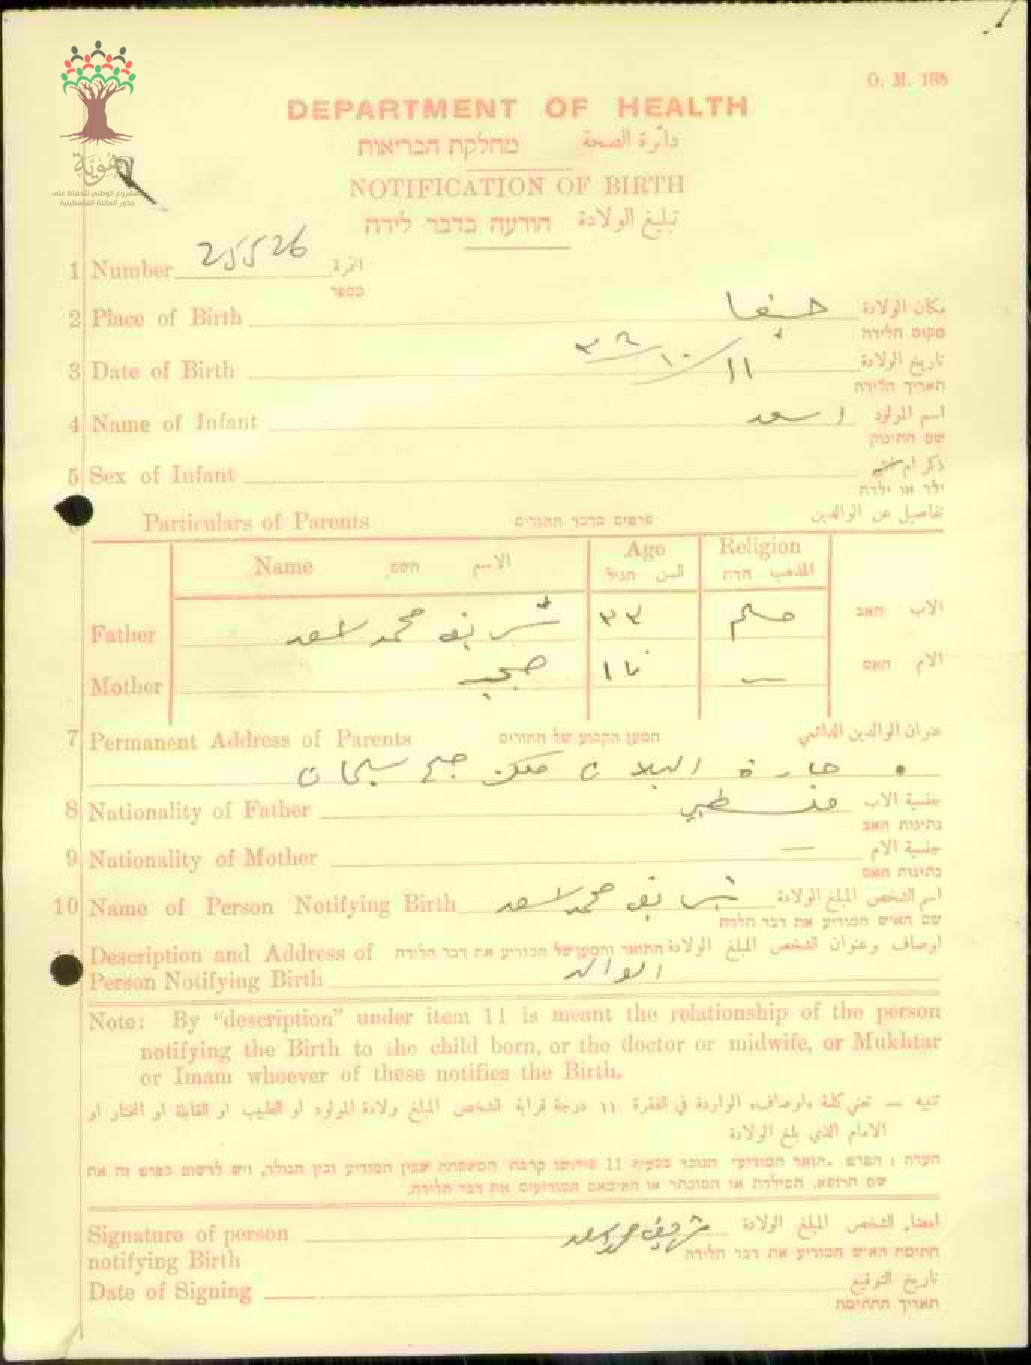 هوية
المشروع الوطني للحفاظ على
جذور العائلة الفلسطينية
O. M. 188
DEPARTMENT OF HEALTH
دائرة الصحة מחלקת הבריאות
NOTIFICATION OF BIRTH
تبليغ الولادة הודעה בדבר לידה
1 Number 25526 النمرة
מספר
2 Place of Birth حيفا مكان الولادة
מקום הלידה
3 Date of Birth ١١/١٠/٣٦ تاريخ الولادة
תאריך הלידה
4 Name of Infant اسعد اسم المولود
שם התינוק
5 Sex of Infant ذكر ام
ילד או ילדה
Particulars of Parents פרטים בדבר ההורים تفاصيل عن الوالدين
Name השם الاسم Age السن הגיל Religion المذهب הדת
Father شريف محمد اسعد ٣٣ مسلم الاب האב
Mother صبحيه الام האם
7 Permanent Address of Parents המען הקבוע של ההורים عنوان الوالدين الدائمي
حارة ملك
8 Nationality of Father فلسطيني جنسية الاب
נתינות האב
9 Nationality of Mother — جنسية الام
נתינות האם
10 Name of Person Notifying Birth شريف محمد اسعد اسم الشخص المبلغ الولادة
שם האיש המודיע את דבר הלידה
Description and Address of התואר והמען של המודיע את דבר הלידה اوصاف وعنوان الشخص المبلغ الولادة
Person Notifying Birth الوالد
Note: By “description” under item 11 is meant the relationship of the person
notifying the Birth to the child born, or the doctor or midwife, or Mukhtar
or Imam whoever of these notifies the Birth.
تنبيه — تعني كلة «اوصاف» الواردة في الفقرة ١١ درجة قرابة الشخص المبلغ ولادة المولود او الطبيب او القابلة او المختار او
الامام الذي بلغ الولادة
הערה : הפרט „תואר המודיע” הנזכר בסעיף 11 פירושו קרבת המשפחה שבין המודיע ובין הנולד, ויש לרשום בפרט זה את
שם הרופא, המילדת או המוכתר או האימאם המודיעים את דבר הלידה.
Signature of person شريف محمد اسعد امضاء الشخص المبلغ الولادة
notifying Birth חתימת האיש המודיע את דבר הלידה
Date of Signing تاريخ التوقيع
תאריך החתימה